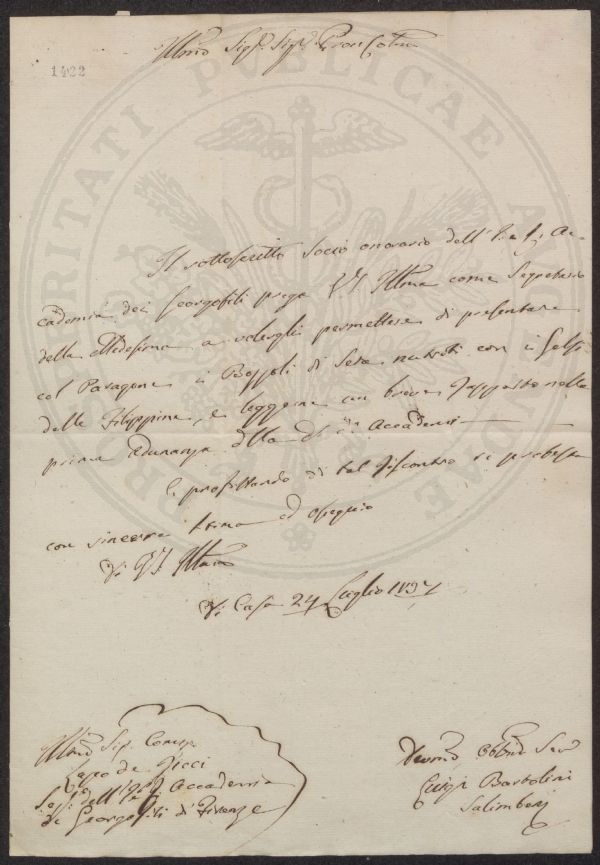 Illmo Sigr. Sigr. Pron Colmo
1422
PROSPERITATI PUBLICAE AUGENDAE
Il sottoscritto Socio onorario dell' I. e R. Ac=
cademia dei Georgofili prega V.S. Illma come Segretario
della Medesima a volergli permettere di presentare
col Paragone i Bozzoli di Seta nutriti con i Gelsi
delle Filippine, e leggerne un breve Rapporto nella
prima Adunanza della Accademia
E profittando di tal riscontro si protesta
con sincera stima ed ossequio
Di V.S. Illma
Di Casa 24 Luglio 1837
Illmo Sig. Comm.
Lapo de Ricci
Seg. dell' I. e R. Accademia
de Georgofili di Firenze
Devmo Obbmo Serv
Luigi Bartolini
Salimbeni